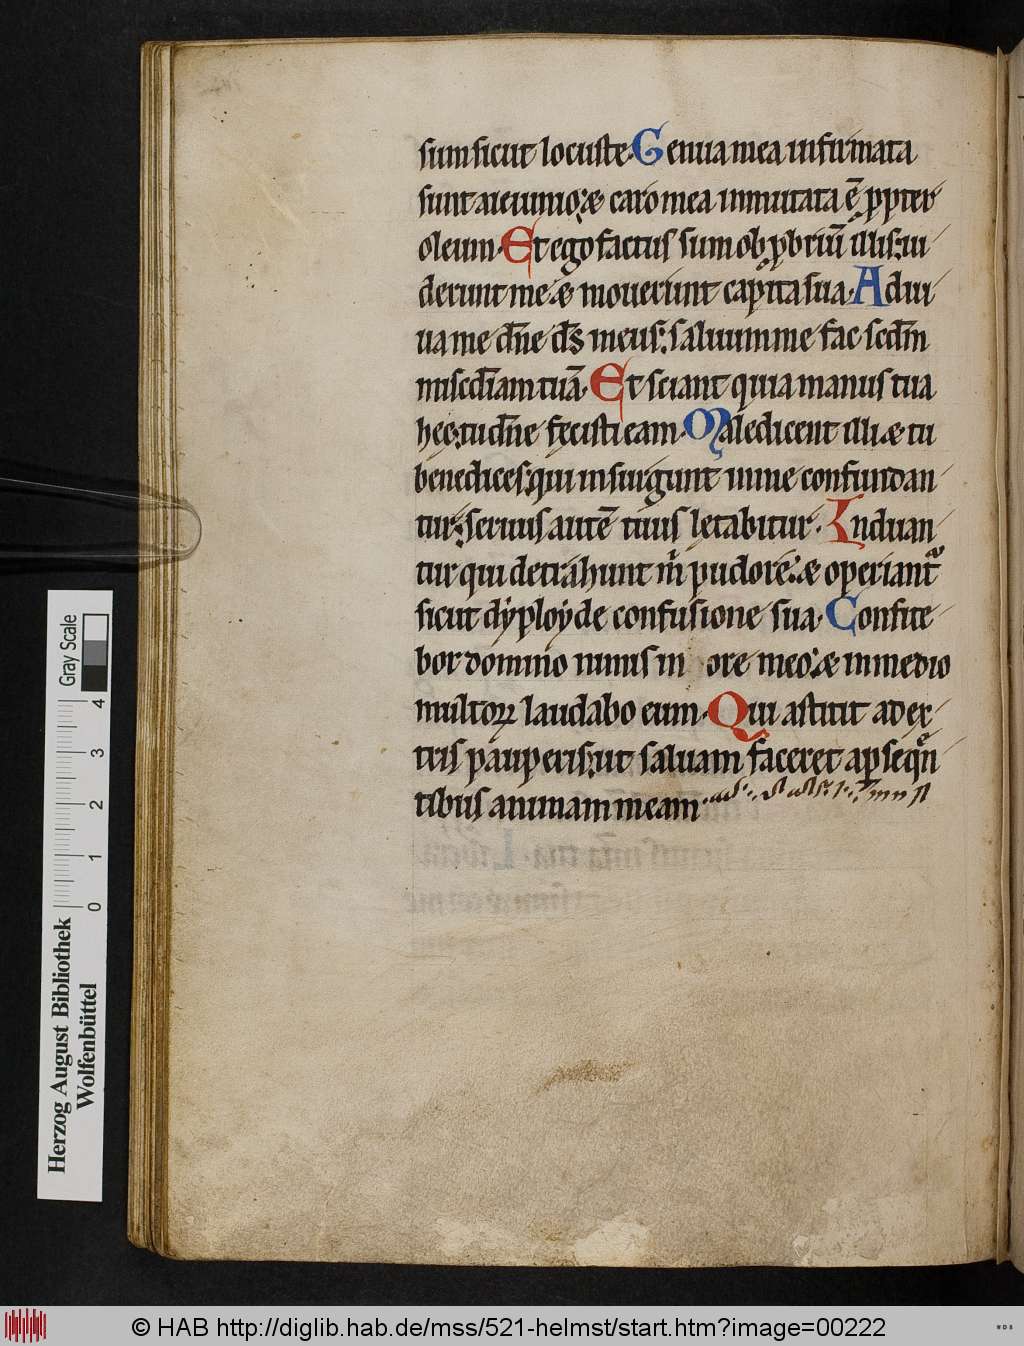 sum sicut locuste. Genua mea infirmata
sunt a ieiunio: & caro mea inmutata ē ꝓpter
oleum. Et ego factus sum obꝓbriū illis: ui
derunt me & mouerunt capita sua. Adiu
ua me dn̄e ds̄ meus: saluum me fac scdm̄
misc̄diam tuā. Et sciant quia manus tua
hec: tu dn̄e fecisti eam. Maledicent illi & tu
benedices: qui insurgunt in me confundan
tur: seruus autē tuus letabitur. Induan
tur qui detrahunt m̄ pudore: & operiantᷣ
sicut dyployde confusione sua. Confite
bor domino nimis in ore meo: & in medio
multoꝝ laudabo eum. Qui astitit a dex
tris pauperis: ut saluam faceret a ꝑseqn̄
tibus animam meam.
Gray Scale
4
3
2
1
0
Herzog August Bibliothek
Wolfenbüttel
© HAB http://diglib.hab.de/mss/521-helmst/start.htm?image=00222